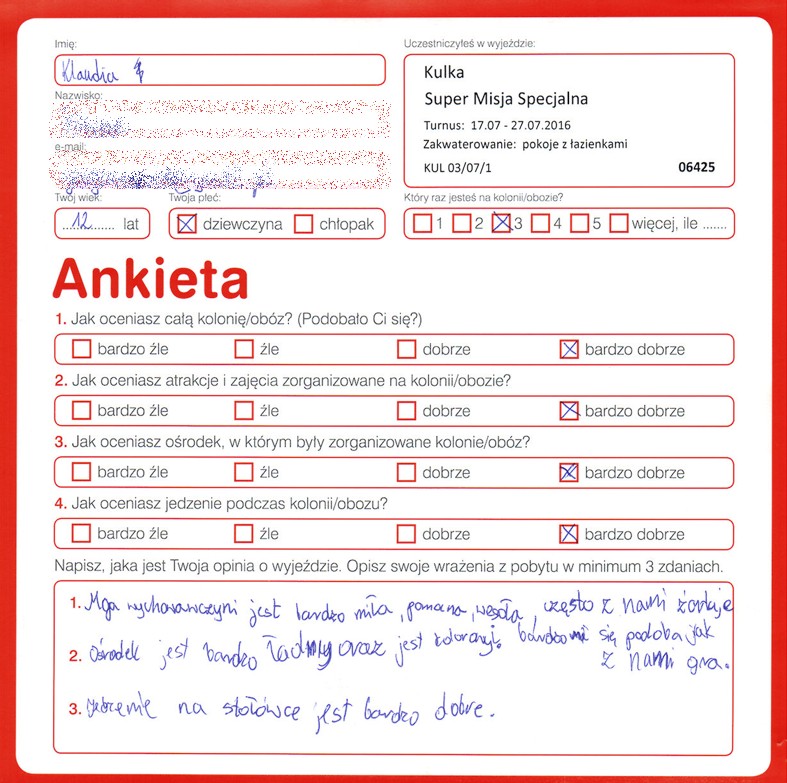 Imię:
Klaudia
Nazwisko:
e-mail:
Twój wiek:
12 lat
Twoja płeć:
dziewczyna chłopak
Uczestniczyłeś w wyjeździe:
Kulka
Super Misja Specjalna
Turnus: 17.07 - 27.07.2016
Zakwaterowanie: pokoje z łazienkami
KUL 03/07/1 06425
Który raz jesteś na kolonii/obozie?
1 2 3 4 5 więcej, ile .......
Ankieta
1. Jak oceniasz całą kolonię/obóz? (Podobało Ci się?)
bardzo źle źle dobrze bardzo dobrze
2. Jak oceniasz atrakcje i zajęcia zorganizowane na kolonii/obozie?
bardzo źle źle dobrze bardzo dobrze
3. Jak oceniasz ośrodek, w którym były zorganizowane kolonie/obóz?
bardzo źle źle dobrze bardzo dobrze
4. Jak oceniasz jedzenie podczas kolonii/obozu?
bardzo źle źle dobrze bardzo dobrze
Napisz, jaka jest Twoja opinia o wyjeździe. Opisz swoje wrażenia z pobytu w minimum 3 zdaniach.
1. Moja wychowawczyni jest bardzo miła, pomocna, wesoła, często z nami żartuje
bardzo mi się podoba jak
z nami gra.
2. Ośrodek jest bardzo ładny oraz jest kolorowy.
3. Jedzenie na stołówce jest bardzo dobre.